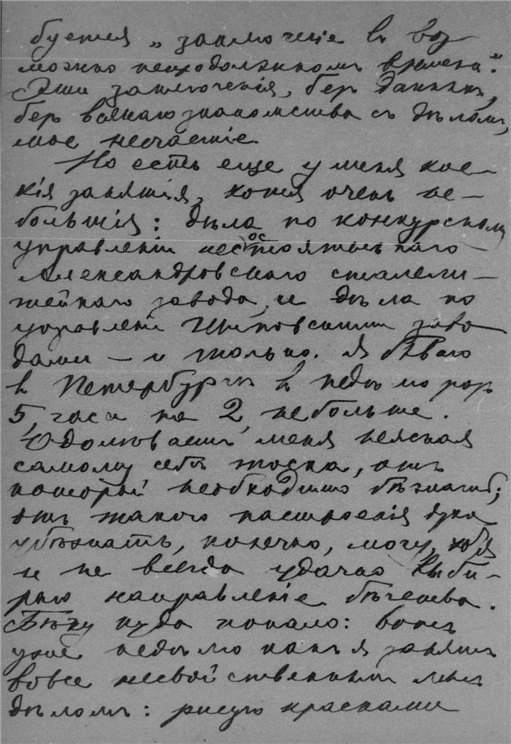 буется „заключеніе въ воз
можно непродолжительномъ времени".
Эти заключенія, безъ данныхъ,
безъ всякаго знакомства съ дѣломъ,
мое несчастіе.
Но есть еще у меня кое-
кія занятія, хотя очень не-
большія: дѣла по конкурсному
управленію несостоятельнаго
Александровскаго сталели-
тейнаго завода, и дѣла по
управленію Шиповскими заво
дами — и только. Я бываю
въ Петербургѣ въ недѣлю раз
5, часа по 2, не больше.
Одолѣваетъ меня неясная
самому себѣ тоска, отъ
которой необходимо бѣжать;
отъ такого настроенія духа
убѣжать, конечно, могу, хотя
и не всегда удачно выби-
раю направленіе бѣгства.
Бѣгу куда попало: вотъ
уже недѣлю какъ я занятъ
вовсе несвойственнымъ мнѣ
дѣломъ: рисую красками